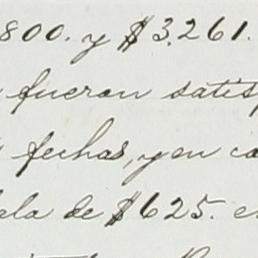 800. y $3.261.
fueron satis
fechas, y en ca
ala de $625. e